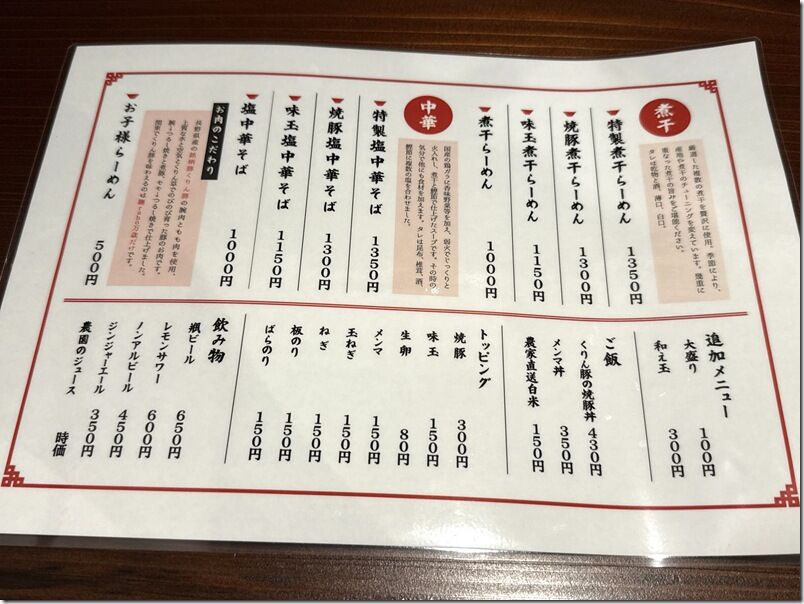 煮干
厳選した複数の煮干を贅沢に使用。季節により、
産地や煮干のチューニングを変えています。幾重に
重なった煮干の旨みをご堪能ください。
タレは乾物と酒、薄口、白口。
特製煮干らーめん 1350円
焼豚煮干らーめん 1300円
味玉煮干らーめん 1150円
煮干らーめん 1000円
中華
国産の鶏ガラと香味野菜等を加え、弱火でじっくりと
火入れし、煮干と鯖節で仕上げたスープです。その時の
気分で他にも食材を加えます。タレは昆布、椎茸、酒、
鰹節に複数の塩を合わせました。
特製塩中華そば 1350円
焼豚塩中華そば 1300円
味玉塩中華そば 1150円
塩中華そば 1000円
お肉のこだわり
長野県産の銘柄豚くりん豚の腕肉ともも肉を使用、
上質な水と空気とくりん草でのびのび育った豚のお肉です。
腕→つるし焼きと煮豚、モモ→つるし焼きで仕上げました。
関東でくりん豚を味わえるのは 万歳だけです。
お子様らーめん 500円
追加メニュー
大盛り 100円
和え玉 300円
ご飯
くりん豚の焼豚丼 430円
メンマ丼 350円
農家直送白米 150円
トッピング
焼豚 300円
味玉 150円
生卵 80円
メンマ 150円
玉ねぎ 150円
ねぎ 150円
板のり 150円
ばらのり 150円
飲み物
瓶ビール 650円
レモンサワー 600円
ノンアルビール 450円
ジンジャーエール 350円
農園のジュース 時価